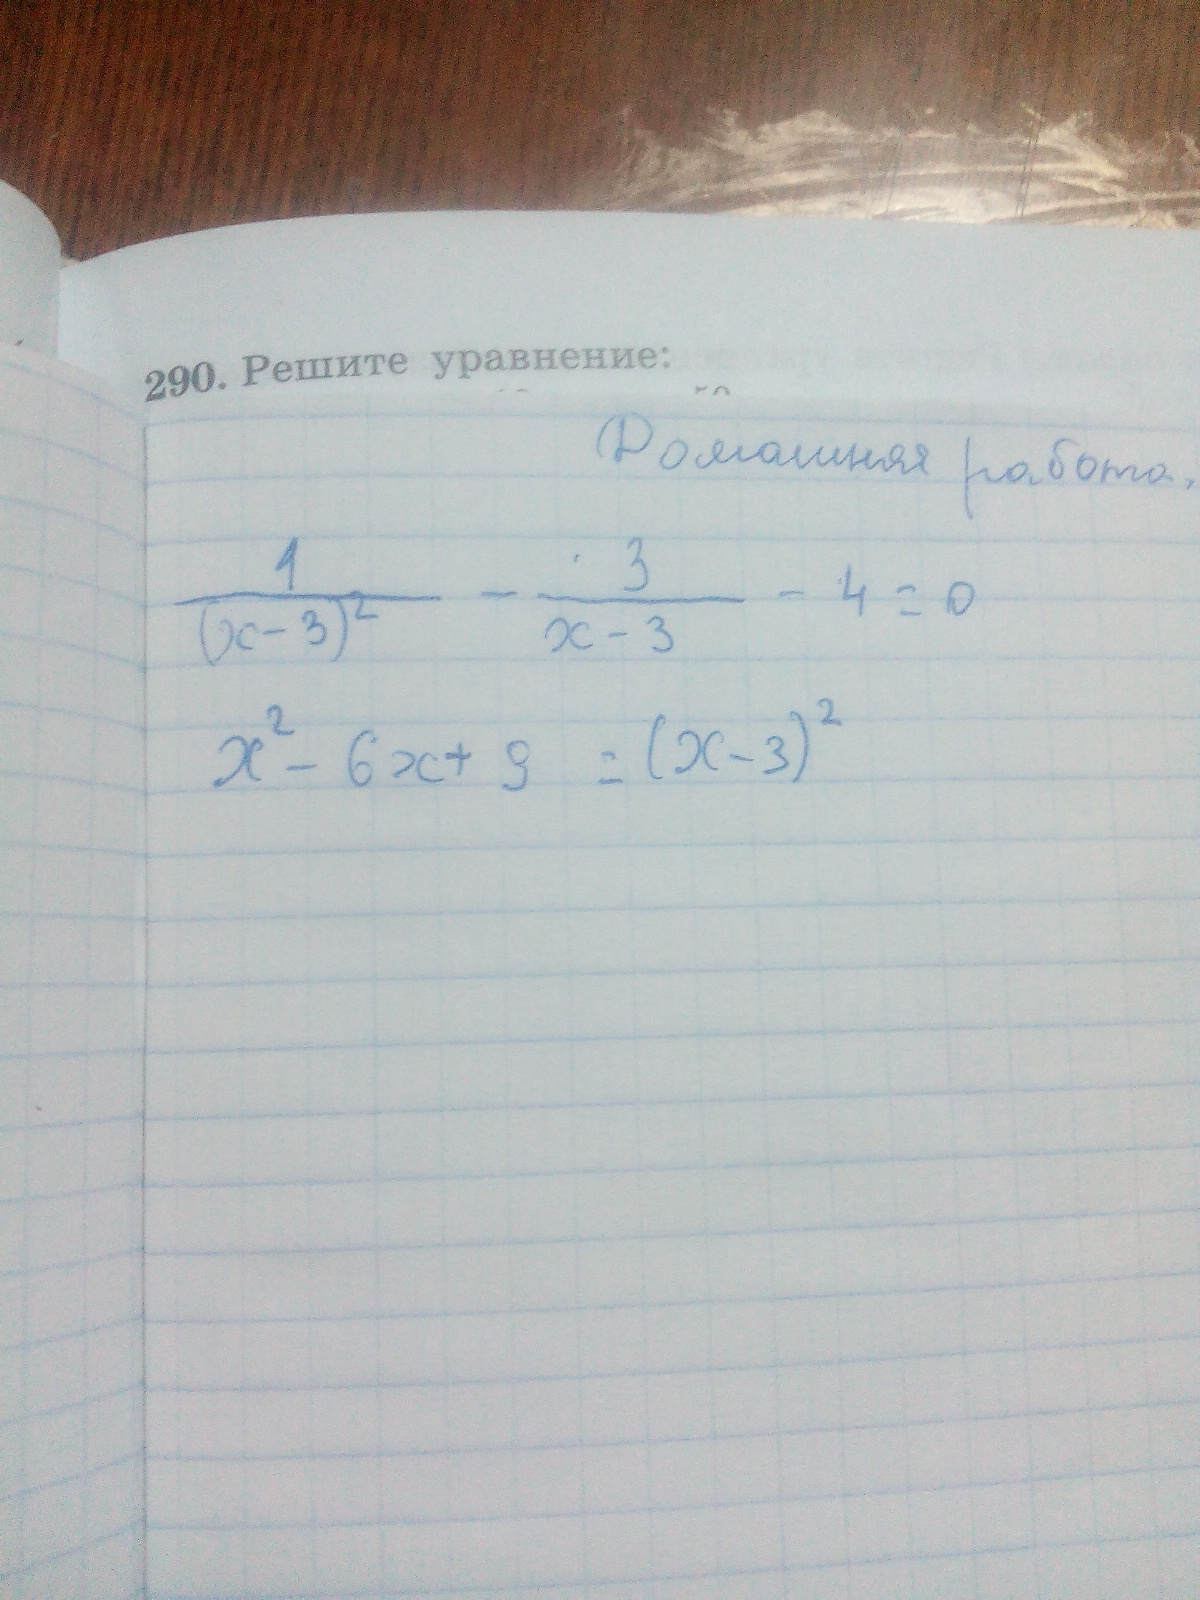 290. Решите уравнение:
Домашняя работа.
1/(x-3)² - 3/(x-3) - 4 = 0
x² - 6x + 9 = (x-3)²